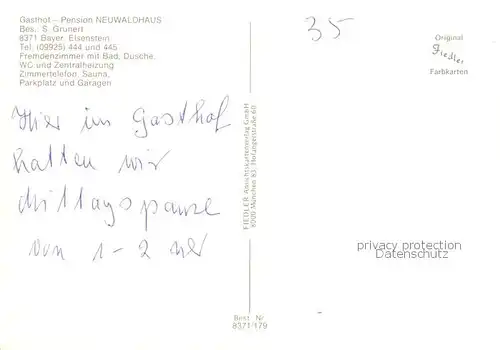 Gasthof - Pension NEUWALDHAUS
Bes.: S. Grunert
8371 Bayer. Eisenstein
Tel. (09925) 444 und 445
Fremdenzimmer mit Bad, Dusche,
WC und Zentralheizung
Zimmertelefon, Sauna,
Parkplatz und Garagen
Hier im Gasthof
hatten wir
Mittagspause
von 1-2 Uhr
35
Original
Fiedler
Farbkarten
FIEDLER Ansichtskartenverlag GmbH
8000 München 83, Hofangerstraße 60
privacy protection
Datenschutz
Best. Nr
8371/179